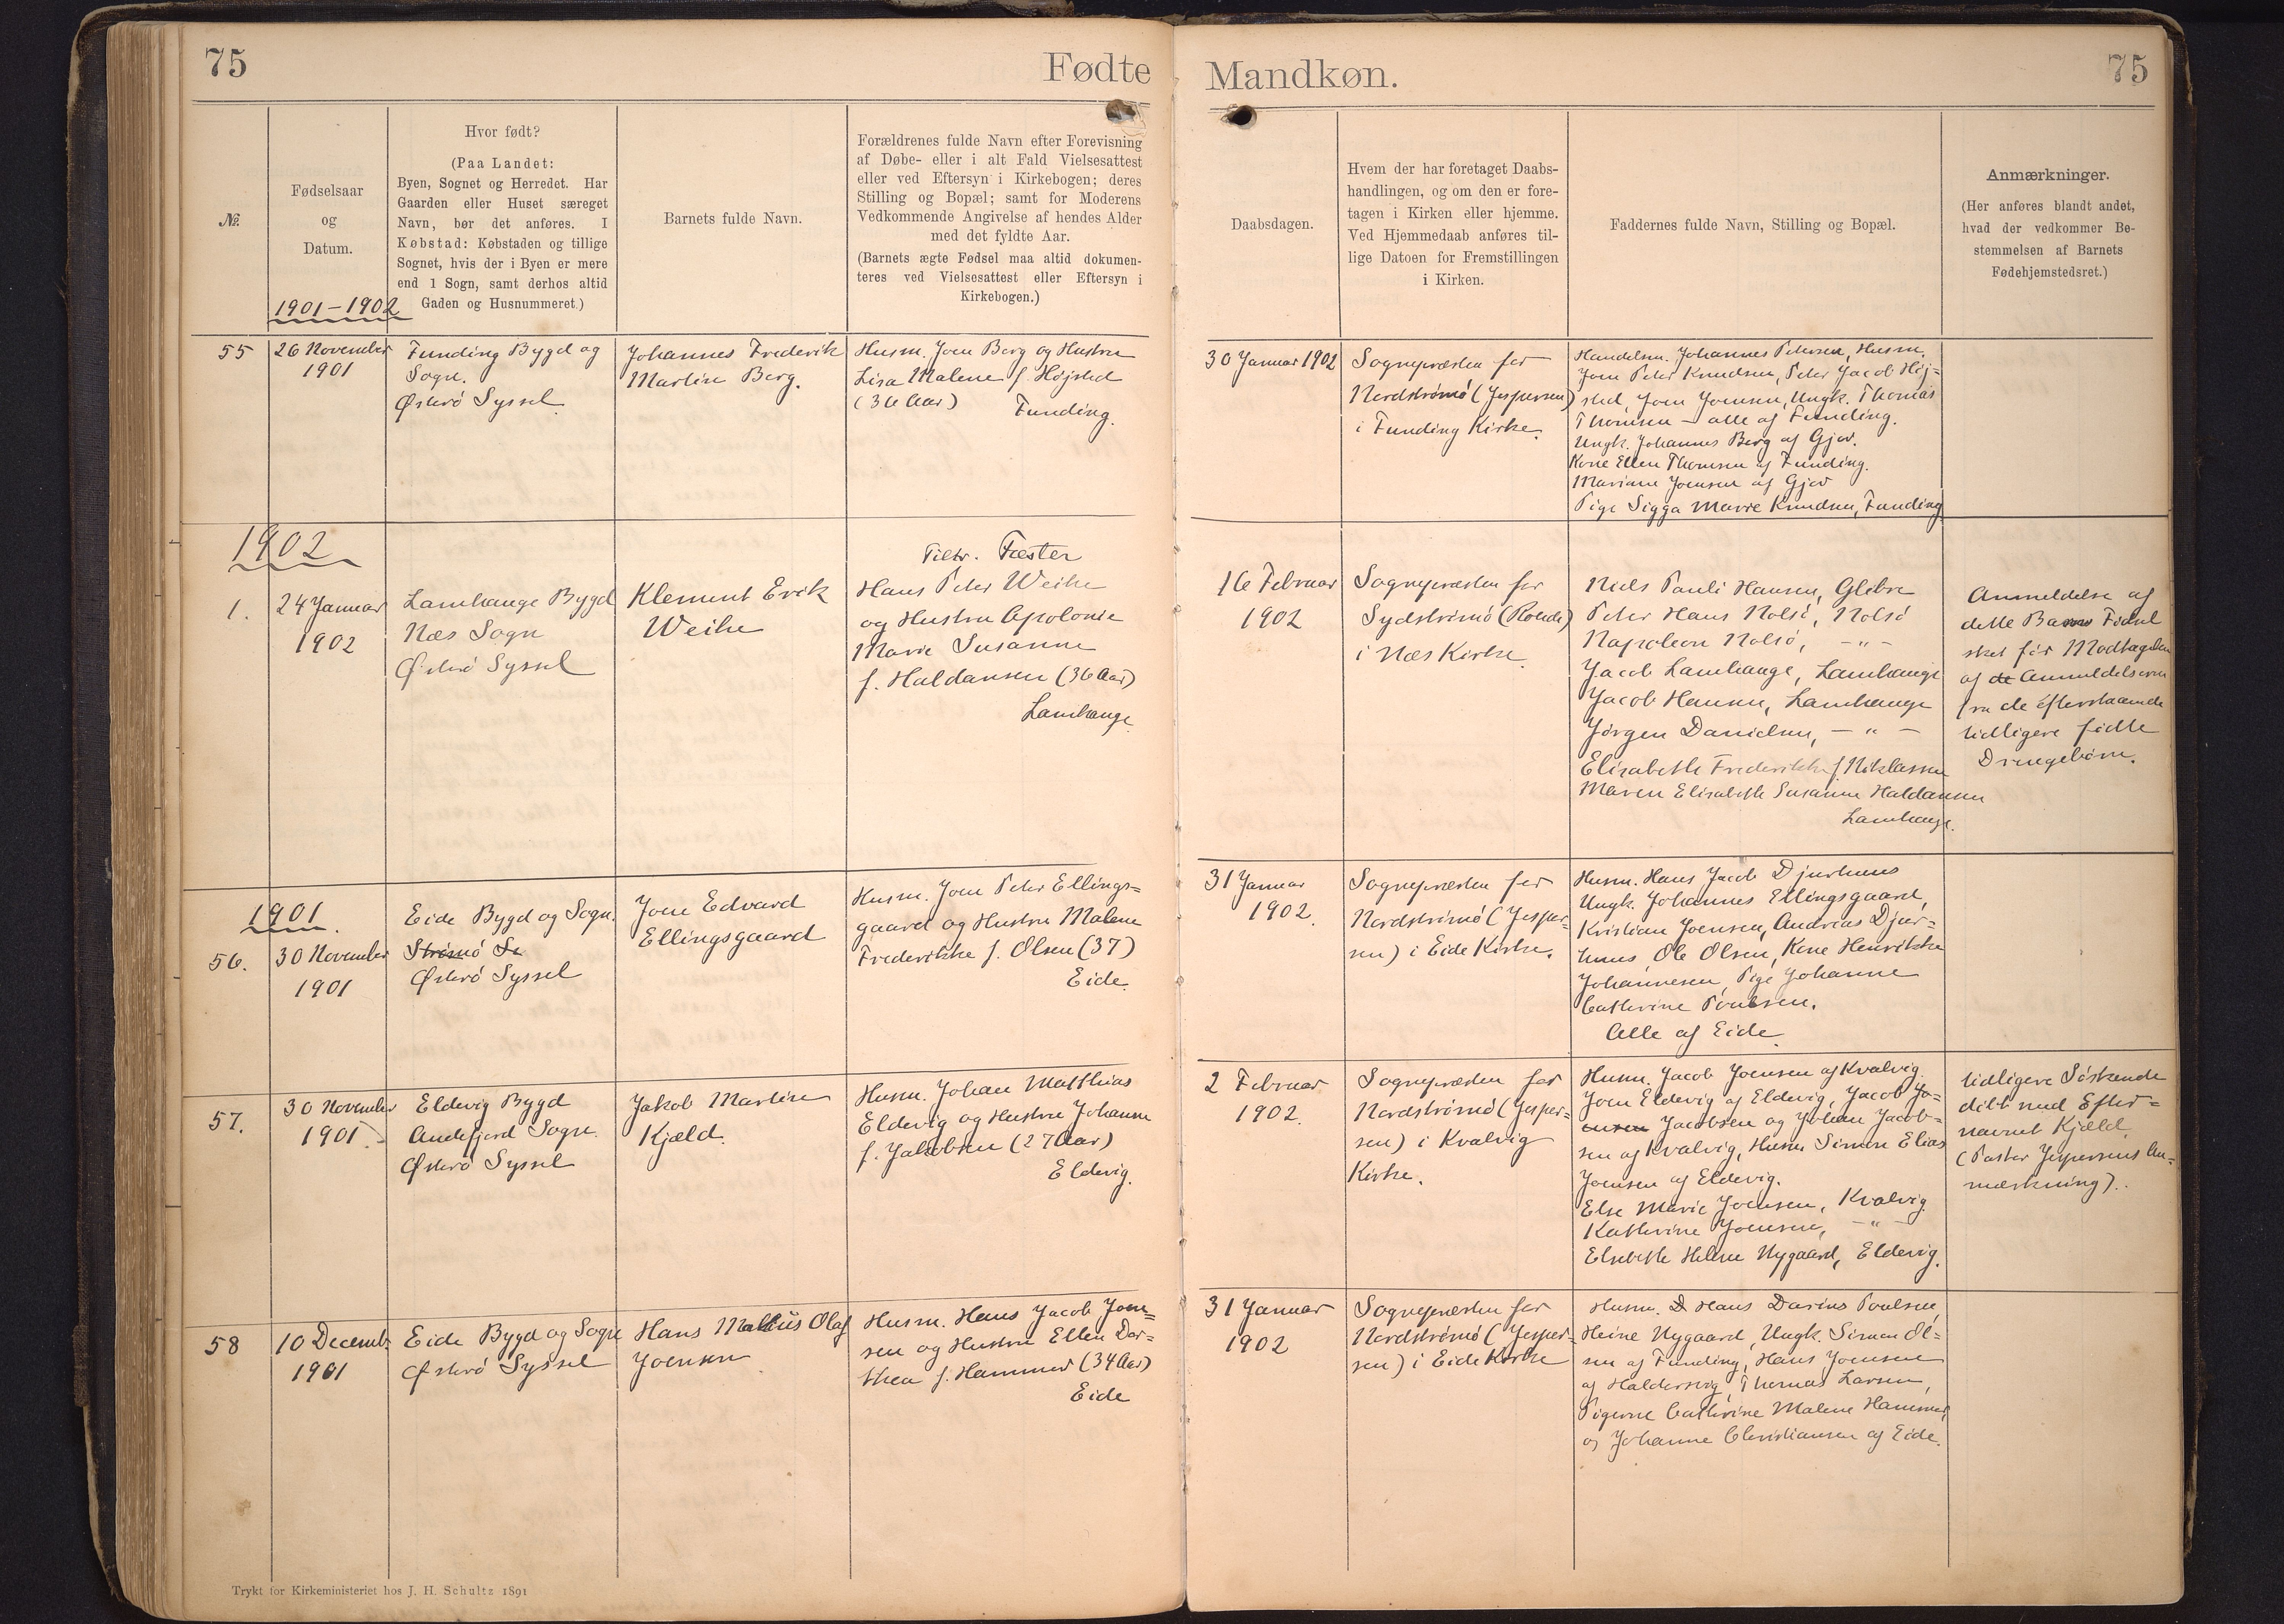 75
Fødte
Mandkøn.
75
№.
Fødselsaar
og
Datum.
1901-1902
Hvor født?
(Paa Landet:
Byen, Sognet og Herredet. Har
Gaarden eller Huset særeget
Navn, bør det anføres. I
Købstad: Købstaden og tillige
Sognet, hvis der i Byen er mere
end 1 Sogn, samt derhos altid
Gaden og Husnummeret.)
Barnets fulde Navn.
Forældrenes fulde Navn efter Forevisning
af Døbe- eller i alt Fald Vielsesattest
eller ved Eftersyn i Kirkebogen; deres
Stilling og Bopæl; samt for Moderens
Vedkommende Angivelse af hendes Alder
med det fyldte Aar.
(Barnets ægte Fødsel maa altid dokumen-
teres ved Vielsesattest eller Eftersyn i
Kirkebogen.)
Daabsdagen.
Hvem der har foretaget Daabs-
handlingen, og om den er fore-
tagen i Kirken eller hjemme.
Ved Hjemmedaab anføres til-
lige Datoen for Fremstillingen
i Kirken.
Faddernes fulde Navn, Stilling og Bopæl.
Anmærkninger.
(Her anføres blandt andet,
hvad der vedkommer Be-
stemmelsen af Barnets
Fødehjemstedsret.)
55
26 November
1901
Funding Bygd og
Sogn.
Østerø Syssel
Johannes Frederik
Martin Berg.
Husm. Joen Berg og Hustru
Lisa Malene f. Højsted
(36 Aar)
Funding.
30 Januar 1902
Sognepræsten for
Nordstrømø (Jespersen)
i Funding Kirke.
Handelsm. Johannes Petersen, Husm.
Joen Peter Knudsen, Peter Jacob Høj=
sted, Joen Joensen, Ungk. Thomas
Thomsen - alle af Funding.
Ungk. Johannes Berg af Gjov.
Kone Ellen Thomsen af Funding.
Mariane Joensen af Gjov
Pige Sigga Marie Knudsen, Funding
1902
1.
24 Januar
1902
Lamhauge Bygd
Næs Sogn
Østerø Syssel
Klement Erik
Weihe
Tiltr. Fæster
Hans Peter Weihe
og Hustru Apolonie
Marie Susanne
f. Haldansen (36 Aar)
Lamhauge
16 Februar
1902
Sognepræsten for
Sydstrømø (Rohde)
i Næs Kirke.
Niels Pauli Hansen, Glibre
Peter Hans Nolsø, Nolsø
Napoleon Nolsø, -"-
Jacob Lamhauge, Lamhauge
Jacob Hansen, Lamhauge
Jørgen Danielsen, - " -
Elisabeth Frederikke f. Niklassen
Maren Elisabeth Susanne Haldansen
Lamhauge.
Anmeldelse af
dette Barns Fødsel
sket før Modtagelsen
af de Anmeldelserne
fra de efterstaaende
tidligere fødte
Drengebørn.
1901
56.
30 November
1901
Eide Bygd og Sogn.
Strømø Se
Østerø Syssel
Joen Edvard
Ellingsgaard
Husm. Joen Peter Ellings=
gaard og Hustru Malene
Frederikke f. Olsen (37)
Eide.
31 Januar
1902.
Sognepræsten for
Nordstrømø (Jesper-
sen) i Eide Kirke.
Husm. Hans Jacob Djurhuus
Ungk. Johannes Ellingsgaard,
Kristian Joensen, Andreas Djur-
huus, Ole Olsen, Kone Henrikke
Johannesen, Pige Johanne
Cathrine Poulsen.
Alle af Eide.
57.
30 November
1901.
Eldevig Bygd
Andefjord Sogn.
Østerø Syssel
Jakob Martin
Kjæld.
Husm. Johan Matthias
Eldevig og Hustru Johanne
f. Jakobsen (27 Aar)
Eldevig.
2 Februar
1902.
Sognepræsten for
Nordstrømø (Jesper-
sen) i Kvalvig
Kirke.
Husm. Jacob Joensen af Kvalvig.
Joen Eldevig af Eldevig, Jacob Jo=
ensen Jacobsen og Johan Jacob-
sen af Kvalvig, Husm. Simon Elias
Joensen af Eldevig.
Else Marie Joensen, Kvalvig.
Kathrine Joensen, - " -
Elsebeth Helene Nygaard, Eldevig.
tidligere Søskende
døbt med Efter-
navnet Kjæld
(Pastor Jespersens An-
mærkning).
58
10 Decemb.
1901
Eide Bygd og Sogn
Østerø Syssel
Hans Mathius Olaf
Joensen
Husm. Hans Jacob Joen=
sen og Hustru Ellen Dor=
thea f. Hammer (34 Aar)
Eide
31 Januar
1902
Sognepræsten for
Nordstrømø (Jesper-
sen) i Eide Kirke
Husm. D Hans Darius Poulsen,
Heine Nygaard, Ungk. Simon Ol=
sen af Funding, Hans Joensen
af Haldersvig, Thomas Larsen,
Pigerne Cathrine Malene Hammer
og Johanne Christiansen af Eide.
Trykt for Kirkeministeriet hos J. H. Schultz 1891